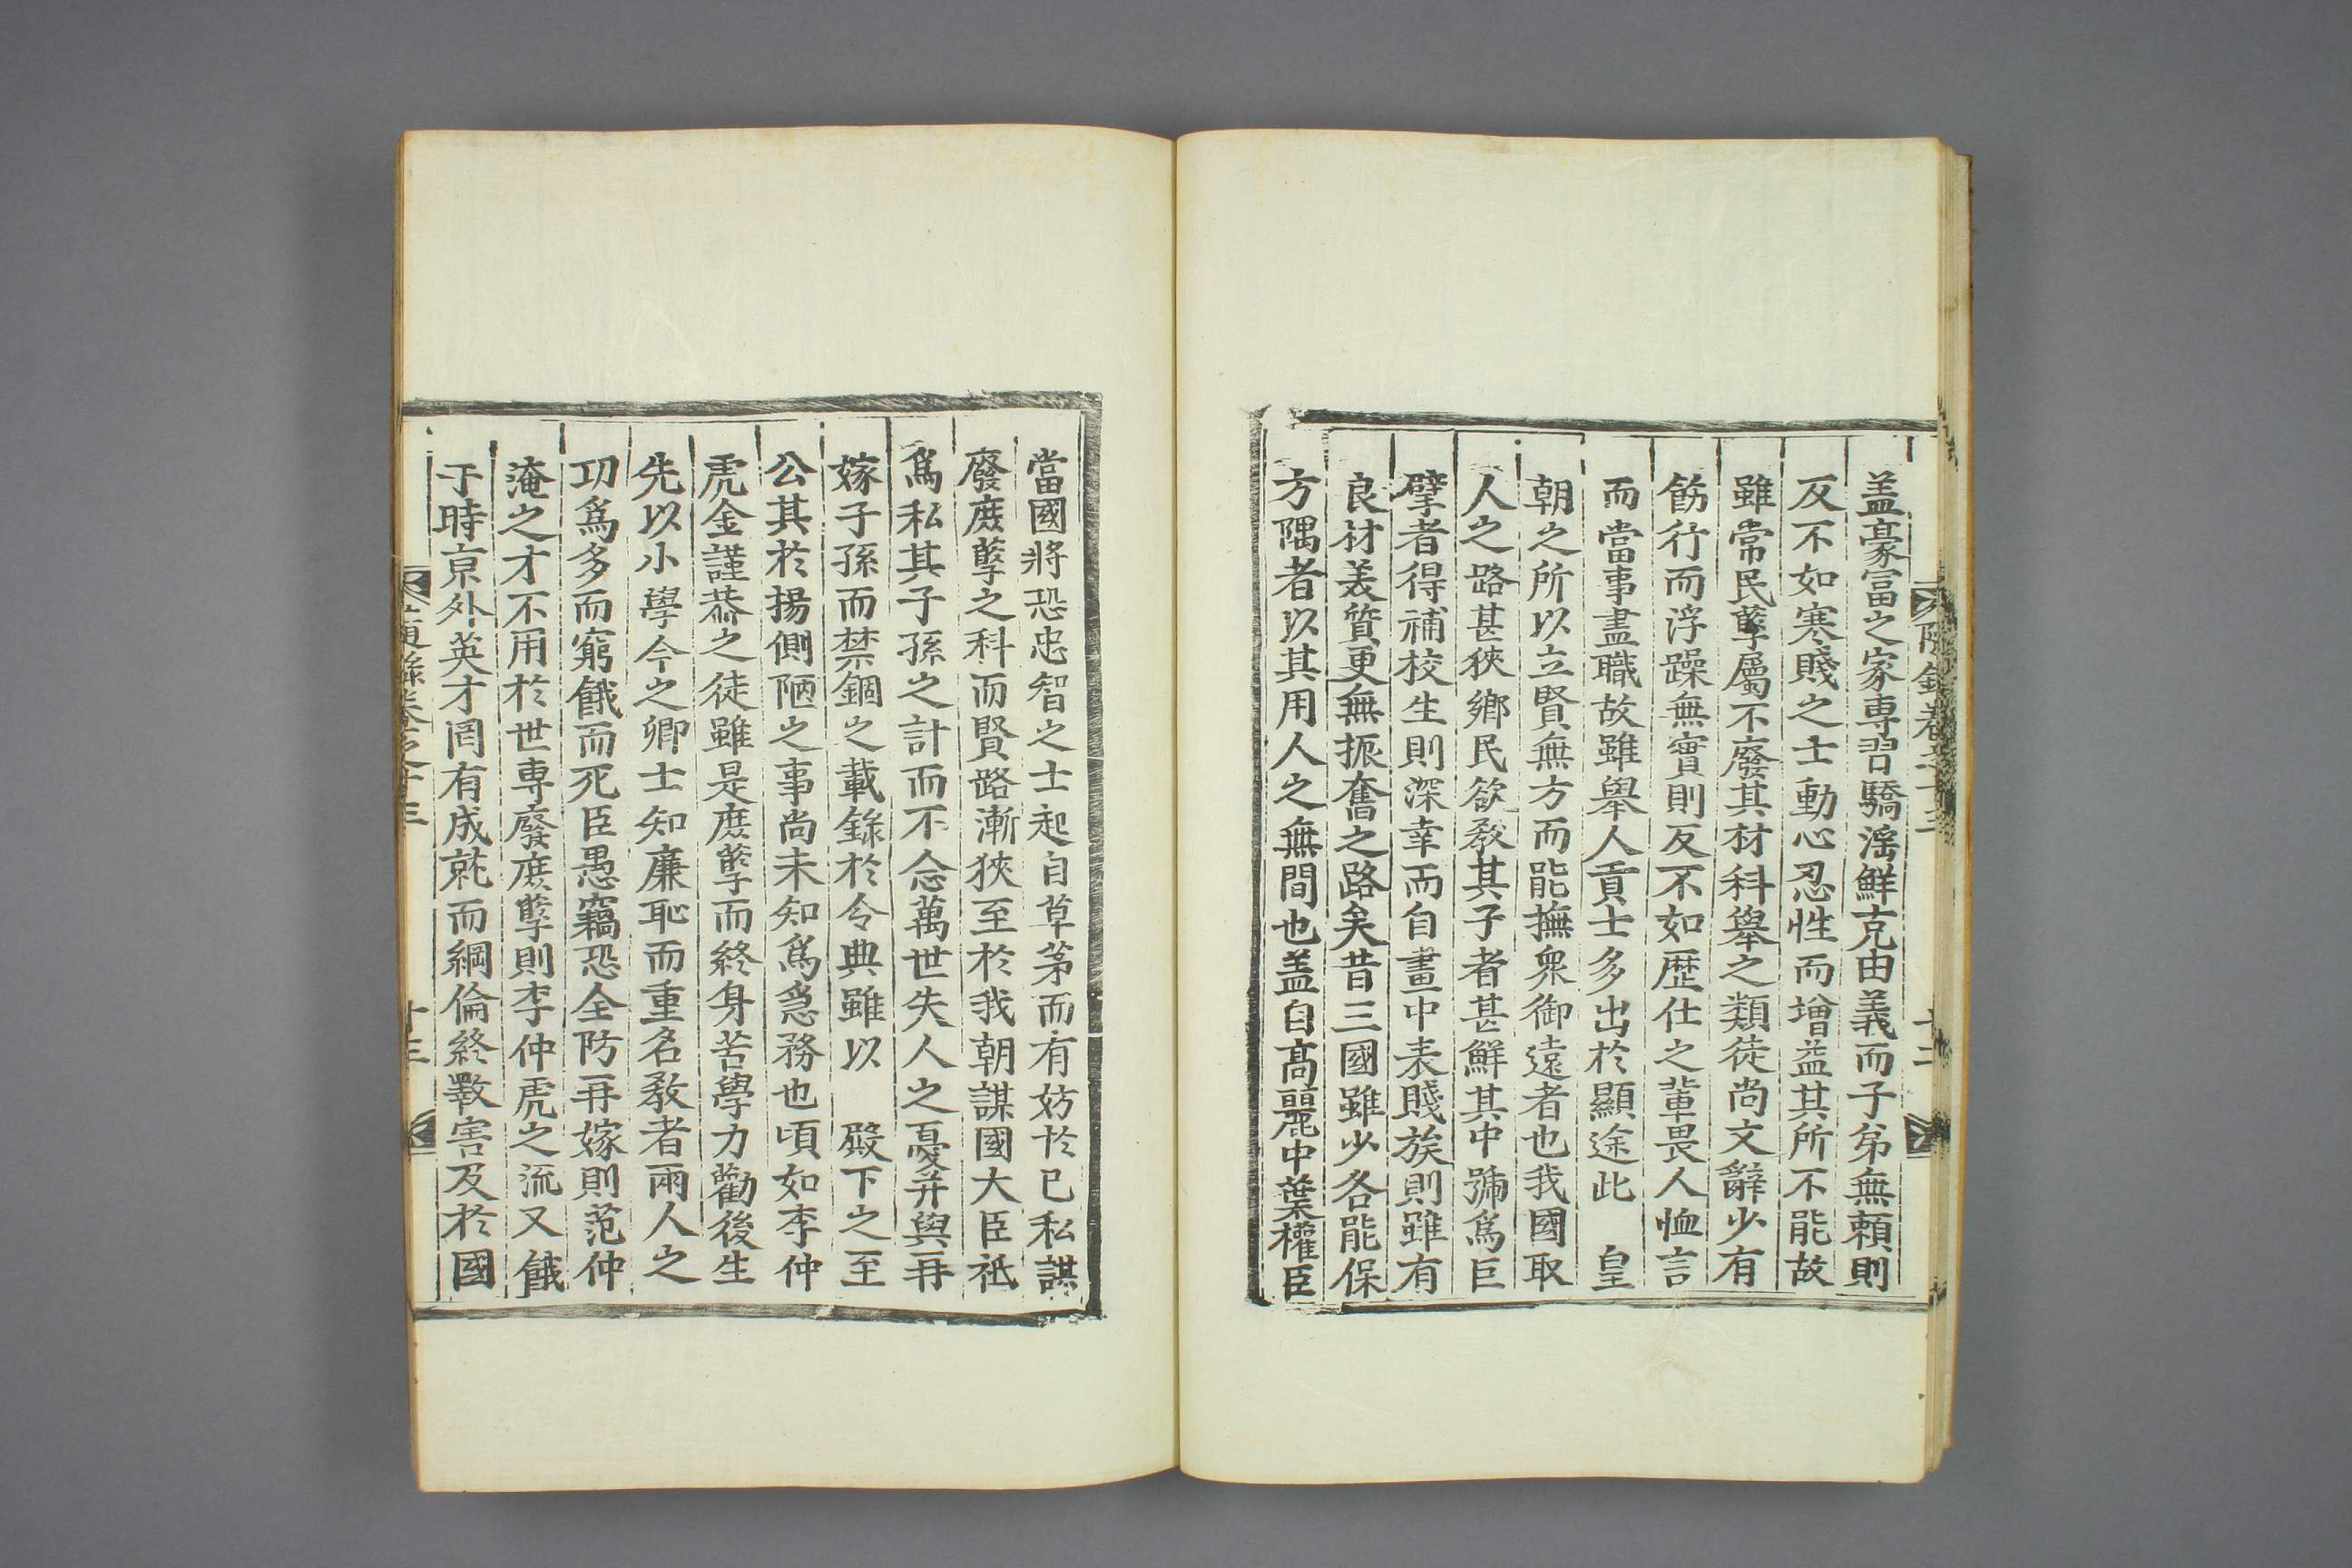 盖豪富之家專習驕滛鮮克由義而子弟無頼則
反不如寒賤之士動心忍性而增益其所不能故
雖常民孽屬不廢其材科舉之類徒尚文辭少有
飭行而浮躁無實則反不如歷仕之輩畏人恤言
而當事盡職故雖舉人貢士多出於顯途此 皇
朝之所以立賢無方而能撫衆御遠者也我國取
人之路甚狹鄉民欲教其子者甚鮮其中號爲巨
擘者得補校生則深幸而自畫中表賤族則雖有
良材美質更無振奮之路矣昔三國雖少各能保
方隅者以其用人之無間也盖自髙麗中葉權臣
當國將恐忠智之士起自草茅而有妨於已私謀
廢庻孽之科而賢路漸狹至於我朝謀國大臣祗
爲私其子孫之計而不念萬世失人之憂并與再
嫁子孫而禁錮之載錄於令典雖以 殿下之至
公其於揚側陋之事尚未知爲急務也頃如李仲
虎金謹恭之徒雖是庻孽而終身苦學力勸後生
先以小學今之卿士知廉恥而重名教者兩人之
功爲多而窮餓而死臣愚竊恐全防再嫁則范仲
淹之才不用於世專廢庻孽則李仲虎之流又餓
于時京外英才罔有成就而綱倫終斁害及於國
卷之十三
十三